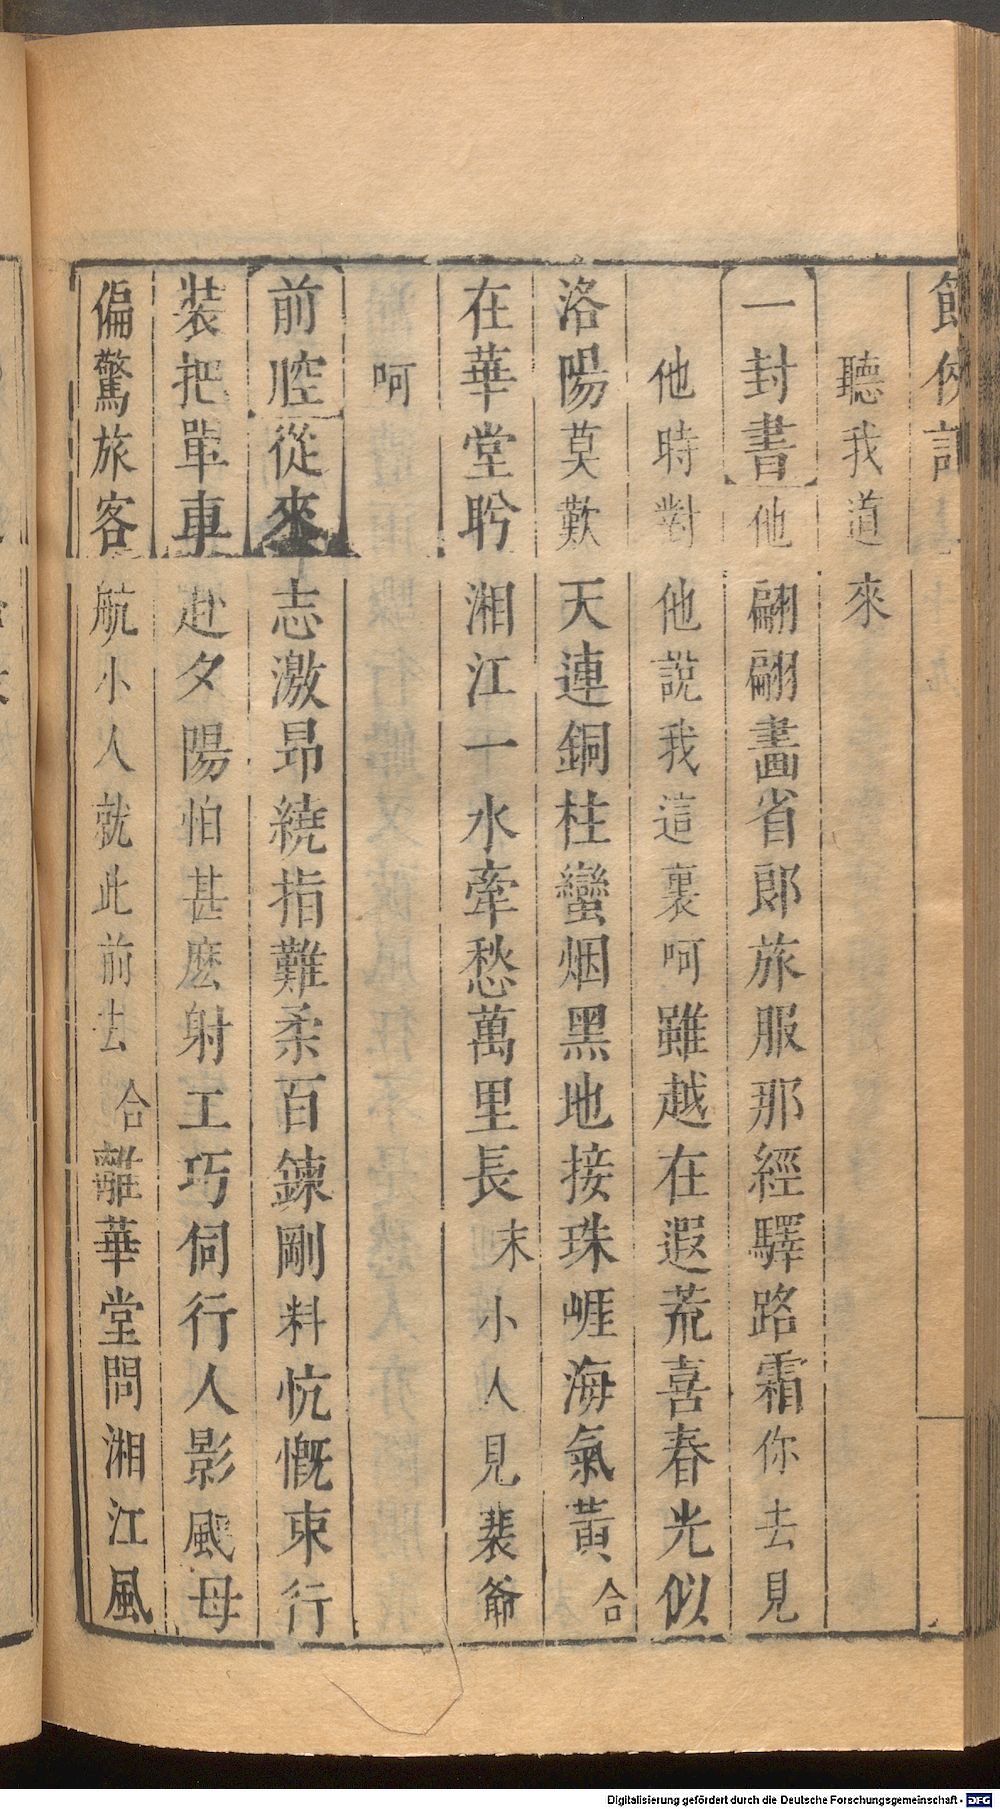 節俠記
聽我道來
一封書他翩翩畫省郎旅服那經驛路霜你去見
他時對他說我這裏呵雖越在遐荒喜春光似
洛陽莫歎天連銅柱蠻烟黑地接珠崕海氣黃合
在華堂盻湘江一水牽愁萬里長末小人見裴爺
呵
前腔從來志激昂繞指難柔百鍊剛料忼慨束行
裝把單車赴夕陽怕甚麽射工巧伺行人影颶母
偏驚旅客航小人就此前去合離華堂問湘江風
Digitalisierung gefördert durch die Deutsche Forschungsgemeinschaft - DFG